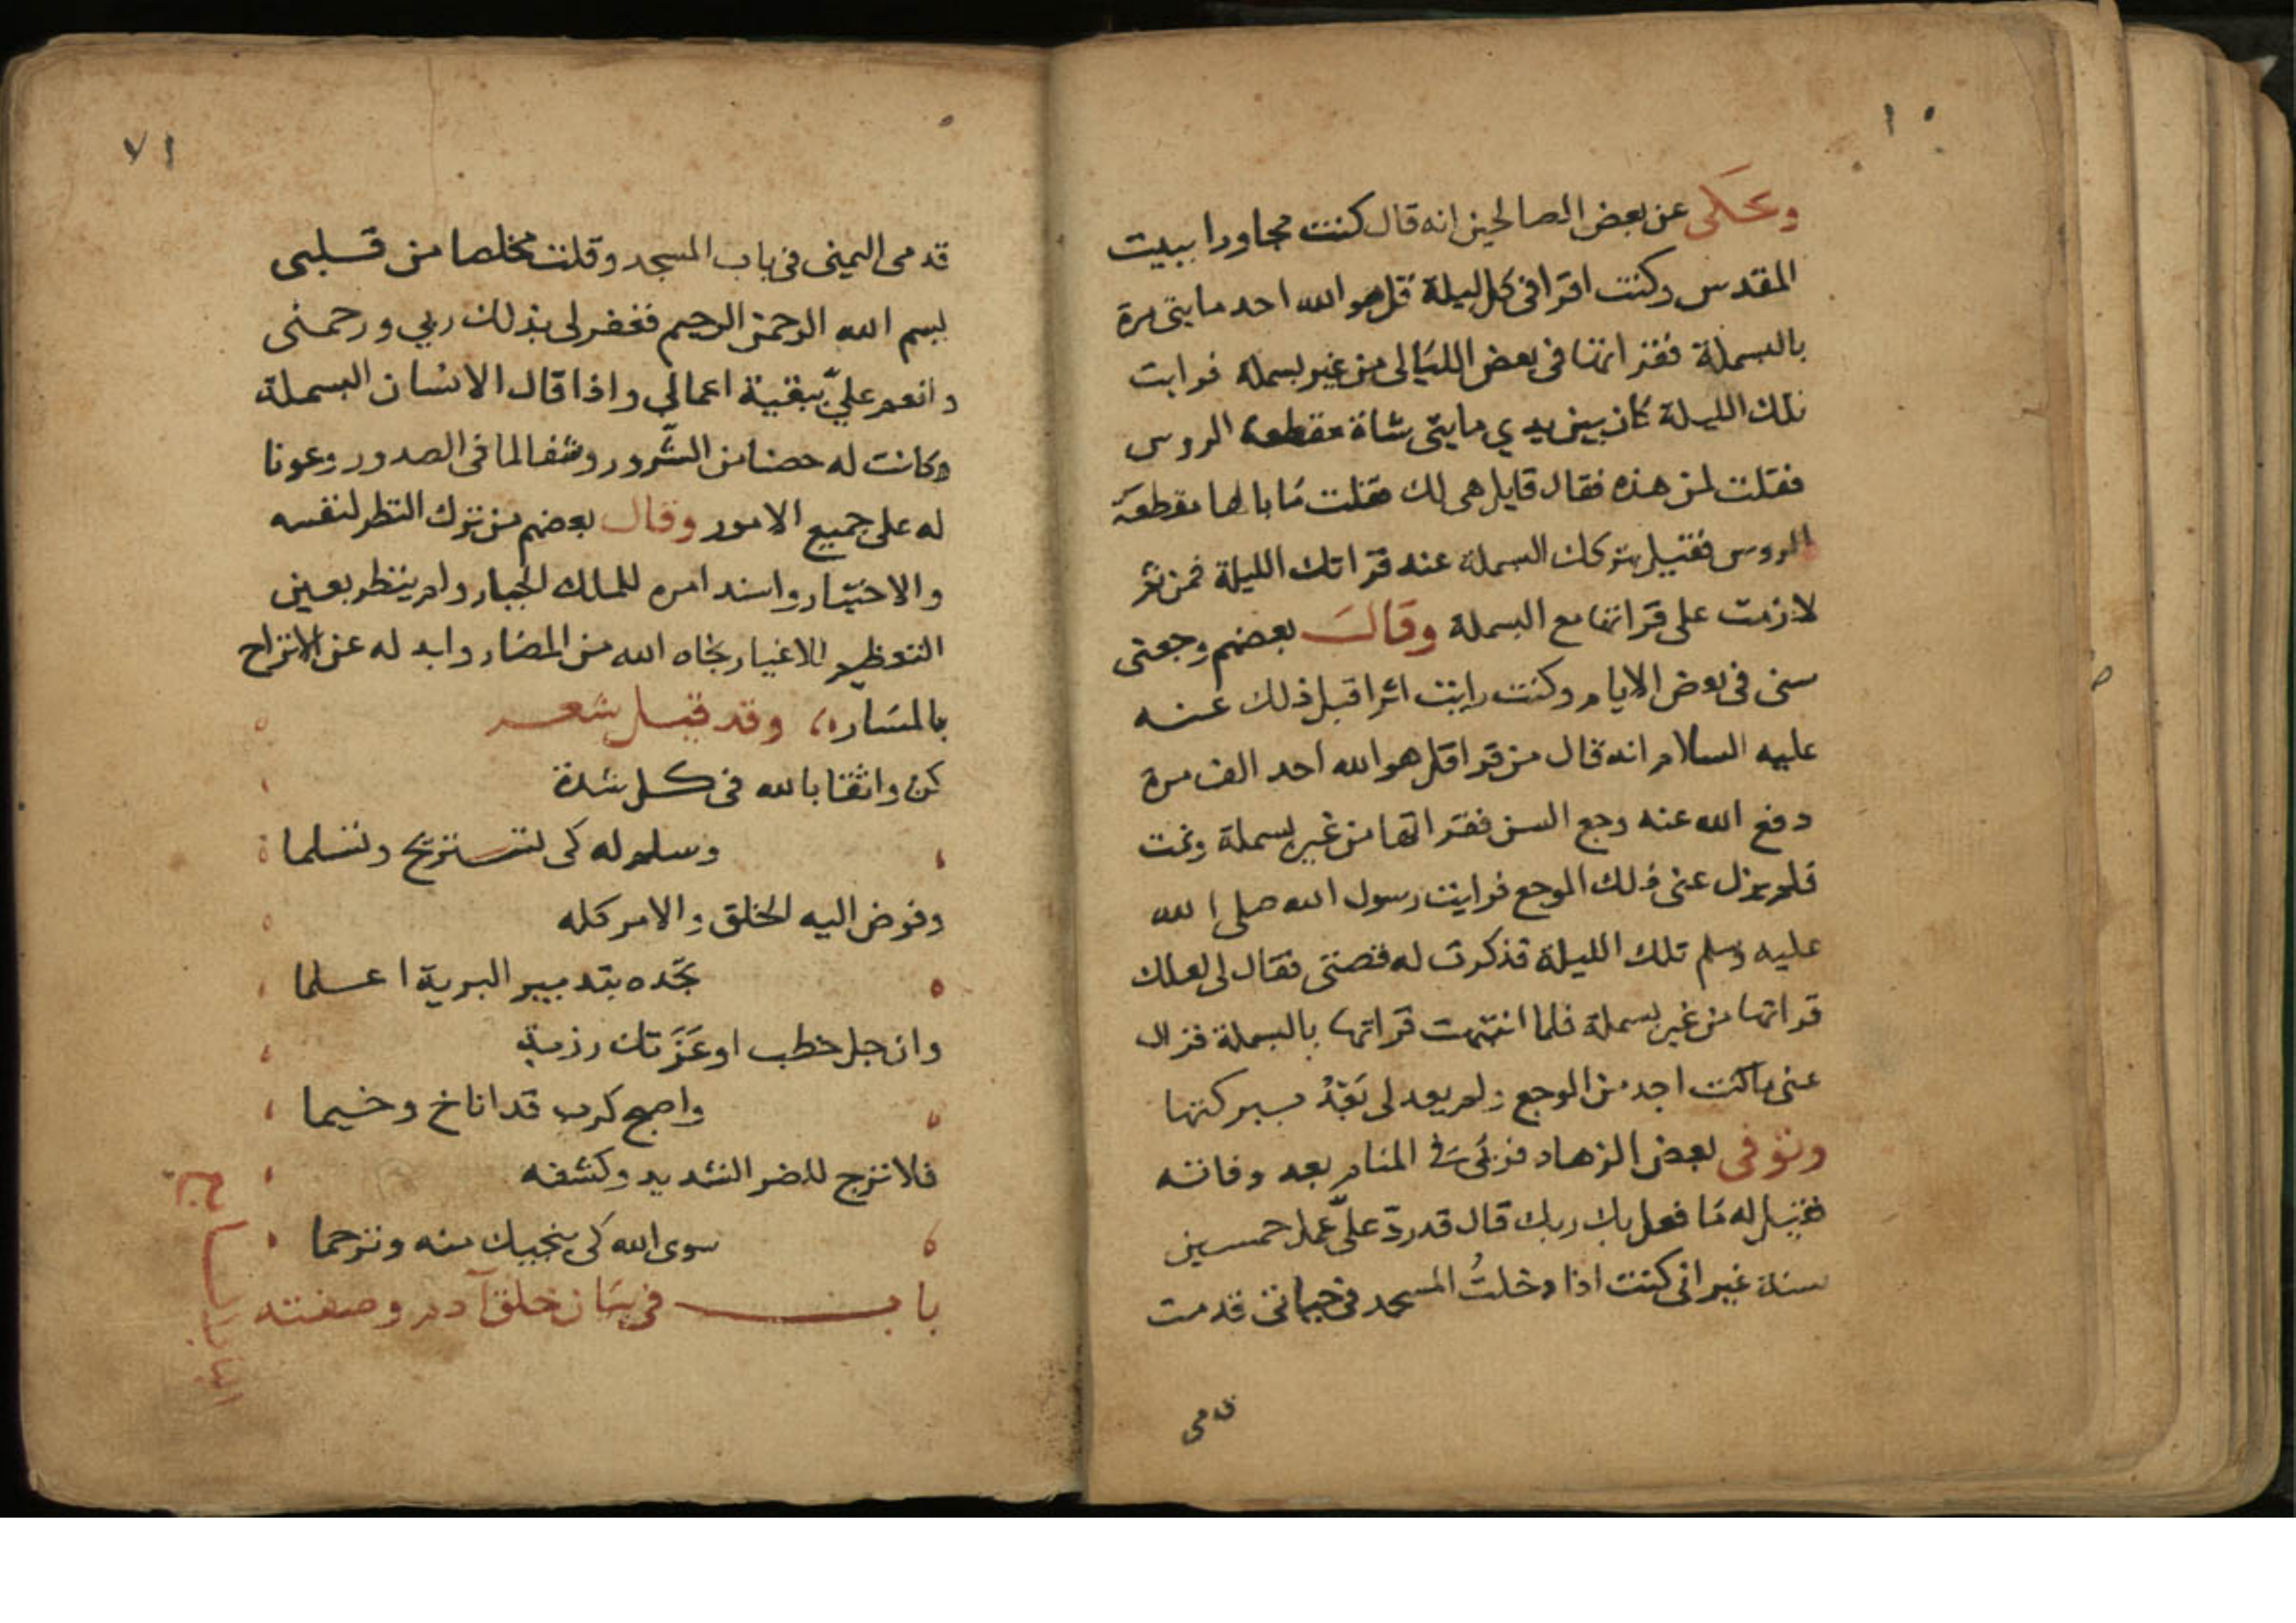 ١٠
وحكى عن بعض الصالحين انه قال كنت مجاورا ببيت
المقدس وكنت اقرا فى كل ليلة قل هو الله احد مايتى مرة
بالبسملة فقراتها فى بعض الليالى من غير بسملة فرايت
تلك الليلة كان بين يدي مايتى شاة مقطعة الروس
فقلت لمن هذه فقال قايل هى لك فقلت ما بالها مقطعة
الروس فقيل بتركك البسملة عند قراتك الليلة فمن ثم
لازمت على قراتها مع البسملة وقال بعضهم وجعتى
سنى فى بعض الايام وكنت رايت اثرا قبل ذلك عنه
عليه السلام انه قال من قرا قل هو الله احد الف مرة
دفع الله عنه وجع السن فقراتها من غير بسملة ونمت
فلم يزل عنى ذلك الوجع فرايت رسول الله صلى الله
عليه وسلم تلك الليلة فذكرت له قصتى فقال لى لعلك
قراتها من غير بسملة فلما انتبهت قراتها بالبسملة فزال
عنى ما كنت اجد من الوجع ولم يعد لى بعد ببركتها
وتوفى بعض الزهاد فرئى فى المنام بعد وفاته
فقيل له ما فعل بك ربك قال قد رد علىّ عمل خمسين
سنة غير انى كنت اذا دخلتُ المسجد فى حياتى قدمت
قدمى
٧١
قدمى اليمنى فى باب المسجد وقلت مخلصا من قلبى
بسم الله الرحمن الرحيم فغفر لى بذلك ربي ورحمنى
وانعم عليّ ببقية اعمالي واذا قال الانسان البسملة
وكانت له حصنا من الشرور وشفا لما فى الصدور وعونا
له على جميع الامور وقال بعضهم من ترك النظر لنفسه
والاختيار واسند امره للملك الجبار ولم ينظر بعين
التعظيم للاغيار نجاه الله من المضار وابد له عن الاتراح
بالمسار، وقد قيل شعر
كن واثقا بالله فى كل شدة
وسلم له كى تستريح وتسلما
وفوض اليه الخلق والامر كله
تجده بتدبير البرية اعلما
وان جل خطب او عرتك رزية
واصبح كرب قد اناخ وخيما
فلا ترج للضر الشديد وكشفه
سوى الله كى ينجيك منه وترحما
باب فى بيان خلق آدم وصفته